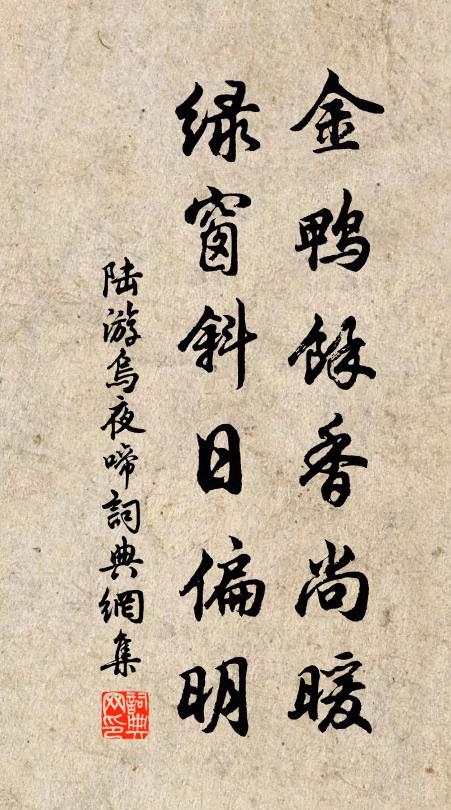 金鸭馀香尚暖
绿窗斜日偏明
陆游乌夜啼词典网集
词典网印